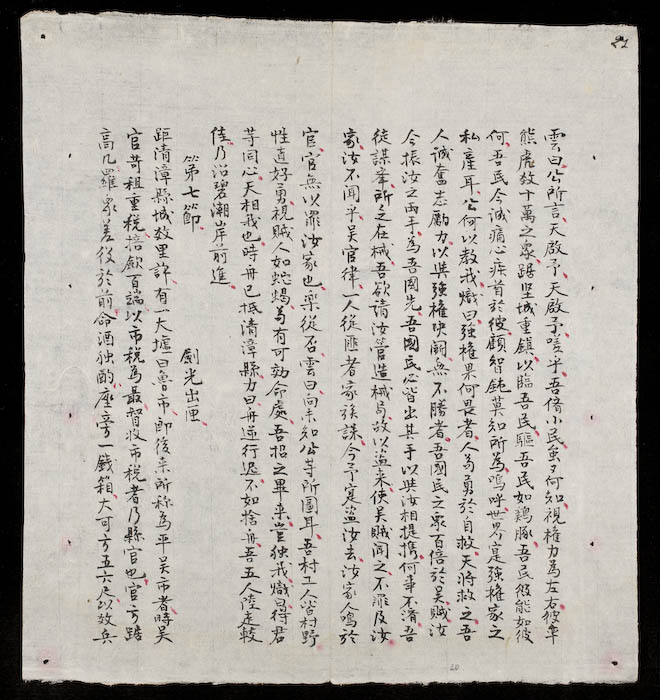 雲曰公所言天啟予天啟予嗟乎吾儕小民何知視權力為左右彼率
熊虎数十萬之眾踞堅城重鎮以臨吾民驅吾民如鷄豚吾民彼能如彼
何吾民今誠痛心疾首於彼顧智鈍莫知所為嗚呼世界寔強權家之
私產耳公何以教我熾曰強權果何畏者人苟勇於自救天將救之吾
人誠奮志勵力以與強權决鬭無不勝者吾國民之眾百倍於吴賊汝
今振汝之両手為吾國先吾國民必皆出其手以與汝相提携何事不濟吾
徒謀举所乏在械吾欲請汝營造械局故以盜来使吴賊聞之不罪及汝
家汝不聞乎吴官律一人從匪者家族誅今予寔盜汝去汝家人鳴於
官官無以罪汝家也樂從否雲曰向未知公等所圖耳吾村工人皆村野
性直好勇視賊人如蛇蝎為有可効命處吾招之畢来豈独我熾曰得君
等同心天相我也時舟已抵清漳縣力曰舟逆行遲不如捨舟吾五人陸走較
佳乃沿碧潮岸前進
第七節 劍光出匣
距清漳縣城数里許有一大墟曰魯市即後来所称為平吴市者時吴
官苛租重税掊歛百端以市税為最督收市税者乃縣官也官方踞
高几羅眾差役於前命酒独酌座旁一錢箱大可方五六尺以数兵
20